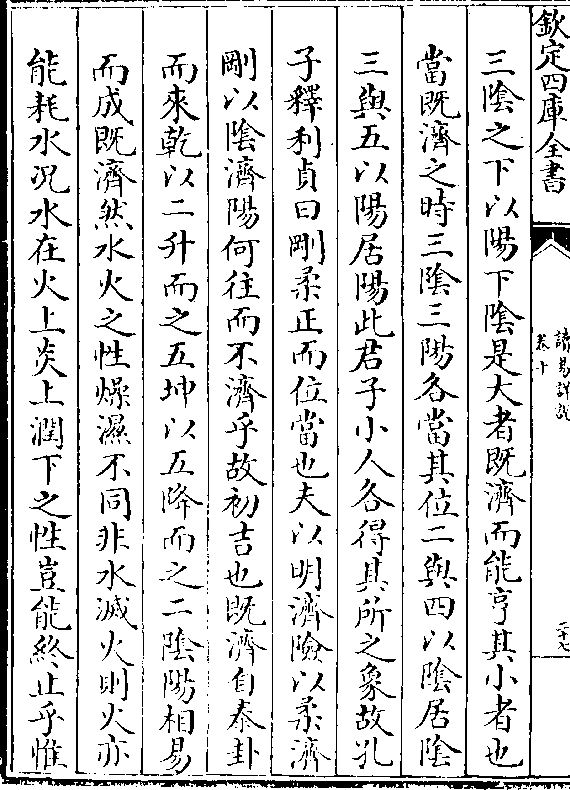 欽定四庫全書
讀易詳説
卷十
二十七
三陰之下以陽下陰是大者既濟而能亨其小者也
當既濟之時三陰三陽各當其位二與四以陰居陰
三與五以陽居陽此君子小人各得其所之象故孔
子釋利貞曰剛柔正而位當也夫以明濟險以柔濟
剛以陰濟陽何往而不濟乎故初吉也既濟自泰卦
而來乾以二升而之五坤以五降而之二陰陽相易
而成既濟然水火之性燥濕不同非水滅火則火亦
能耗水况水在火上炎上潤下之性豈能終止乎惟